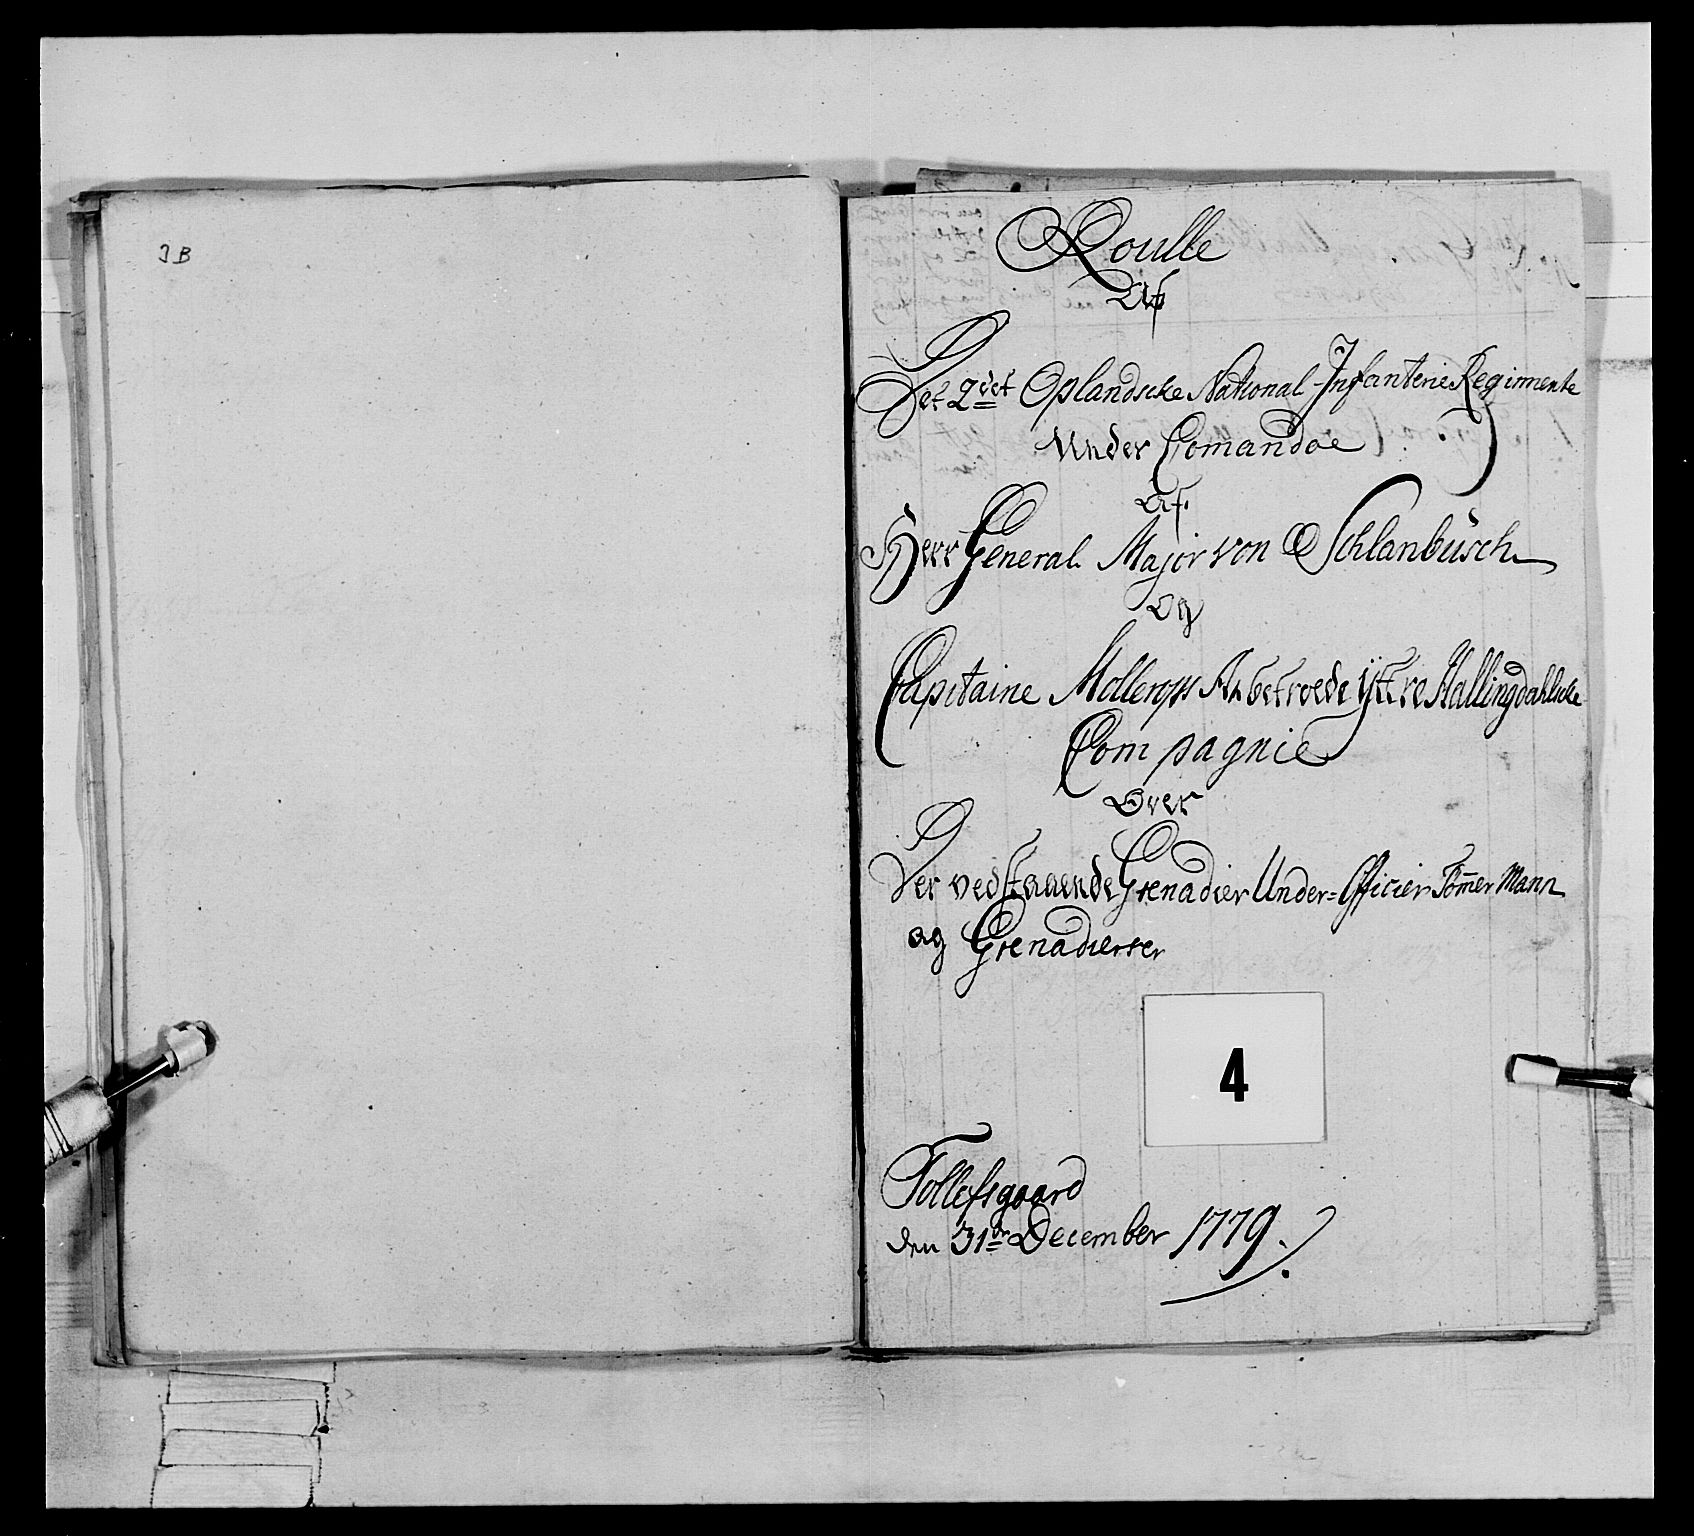 3B
Roulle
Af
Det 2det Oplandscke National Infanterie Regimente
Under Comandoe
Af
Herr General Major von Schlanbüsch
Og
Capitaine Mollerops Anbetroede ÿttre Hallingdahlske
Compagnie
Over
Der vedstaaende Grenadier Under=Officier Tom̄er Mann
og Grenadierer
4
Tollefsgaard
den 31te December 1779.